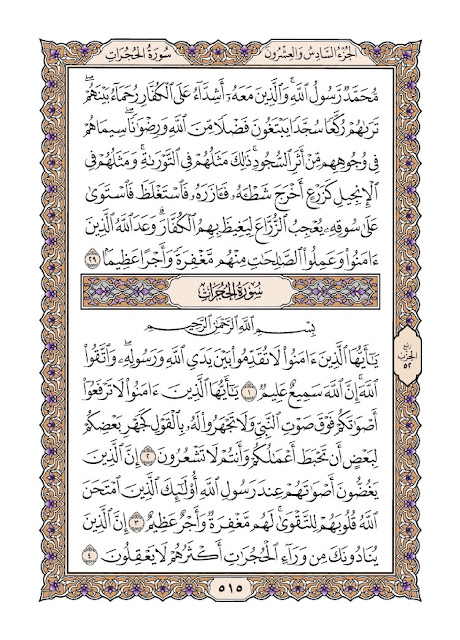 الجزء السادس والعشرون
سورة الحجرات
مُّحَمَّدٌ رَّسُولُ ٱللَّهِ ۚ وَٱلَّذِينَ مَعَهُۥٓ أَشِدَّآءُ عَلَى ٱلْكُفَّارِ رُحَمَآءُ بَيْنَهُمْ ۖ
تَرَىٰهُمْ رُكَّعًا سُجَّدًا يَبْتَغُونَ فَضْلًا مِّنَ ٱللَّهِ وَرِضْوَٰنًا ۖ سِيمَاهُمْ
فِى وُجُوهِهِم مِّنْ أَثَرِ ٱلسُّجُودِ ۚ ذَٰلِكَ مَثَلُهُمْ فِى ٱلتَّوْرَىٰةِ ۚ وَمَثَلُهُمْ فِى
ٱلْإِنجِيلِ كَزَرْعٍ أَخْرَجَ شَطْـَٔهُۥ فَـَٔازَرَهُۥ فَٱسْتَغْلَظَ فَٱسْتَوَىٰ
عَلَىٰ سُوقِهِۦ يُعْجِبُ ٱلزُّرَّاعَ لِيَغِيظَ بِهِمُ ٱلْكُفَّارَ ۗ وَعَدَ ٱللَّهُ ٱلَّذِينَ
ءَامَنُوا۟ وَعَمِلُوا۟ ٱلصَّٰلِحَٰتِ مِنْهُم مَّغْفِرَةً وَأَجْرًا عَظِيمًۢا ٢٩
سورة الحجرات
بِسْمِ ٱللَّهِ ٱلرَّحْمَٰنِ ٱلرَّحِيمِ
يَٰٓأَيُّهَا ٱلَّذِينَ ءَامَنُوا۟ لَا تُقَدِّمُوا۟ بَيْنَ يَدَىِ ٱللَّهِ وَرَسُولِهِۦ ۖ وَٱتَّقُوا۟
ٱللَّهَ ۚ إِنَّ ٱللَّهَ سَمِيعٌ عَلِيمٌ ١ يَٰٓأَيُّهَا ٱلَّذِينَ ءَامَنُوا۟ لَا تَرْفَعُوٓا۟
أَصْوَٰتَكُمْ فَوْقَ صَوْتِ ٱلنَّبِىِّ وَلَا تَجْهَرُوا۟ لَهُۥ بِٱلْقَوْلِ كَجَهْرِ بَعْضِكُمْ
لِبَعْضٍ أَن تَحْبَطَ أَعْمَٰلُكُمْ وَأَنتُمْ لَا تَشْعُرُونَ ٢ إِنَّ ٱلَّذِينَ
يَغُضُّونَ أَصْوَٰتَهُمْ عِندَ رَسُولِ ٱللَّهِ أُو۟لَٰٓئِكَ ٱلَّذِينَ ٱمْتَحَنَ
ٱللَّهُ قُلُوبَهُمْ لِلتَّقْوَىٰ ۚ لَهُم مَّغْفِرَةٌ وَأَجْرٌ عَظِيمٌ ٣ إِنَّ ٱلَّذِينَ
يُنَادُونَكَ مِن وَرَآءِ ٱلْحُجُرَٰتِ أَكْثَرُهُمْ لَا يَعْقِلُونَ ٤
ربع
الحزب
٥٢
٥١٥